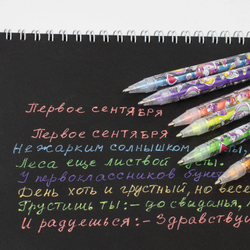 Первое сентября
Первое сентября
Не жарким солнышком
Леса еще листвой густы.
У первоклассников букет
День хоть и грустный, но весе
Грустишь ты:- до свиданья,
И радуешься:- Здравству